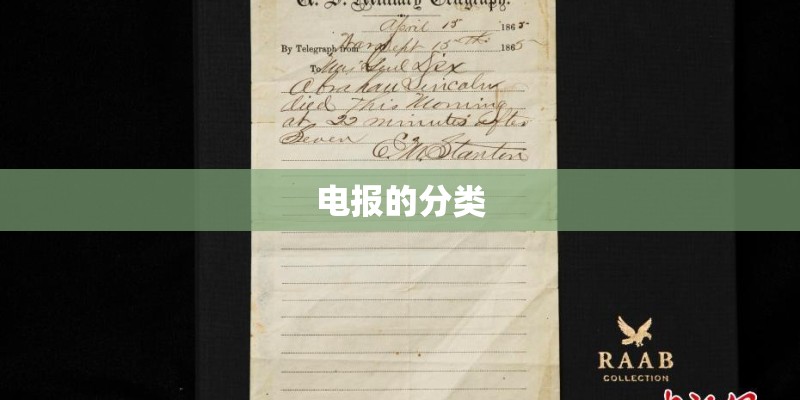 U. S. Military Telegraph.
April 15 1865
By Telegraph from War Dept 15th 1865
To Maj Genl Dix
Abraham Lincoln
died This Morning
at 22 minutes after
Seven
E.M. Stanton
电报的分类
RAAB
COLLECTION